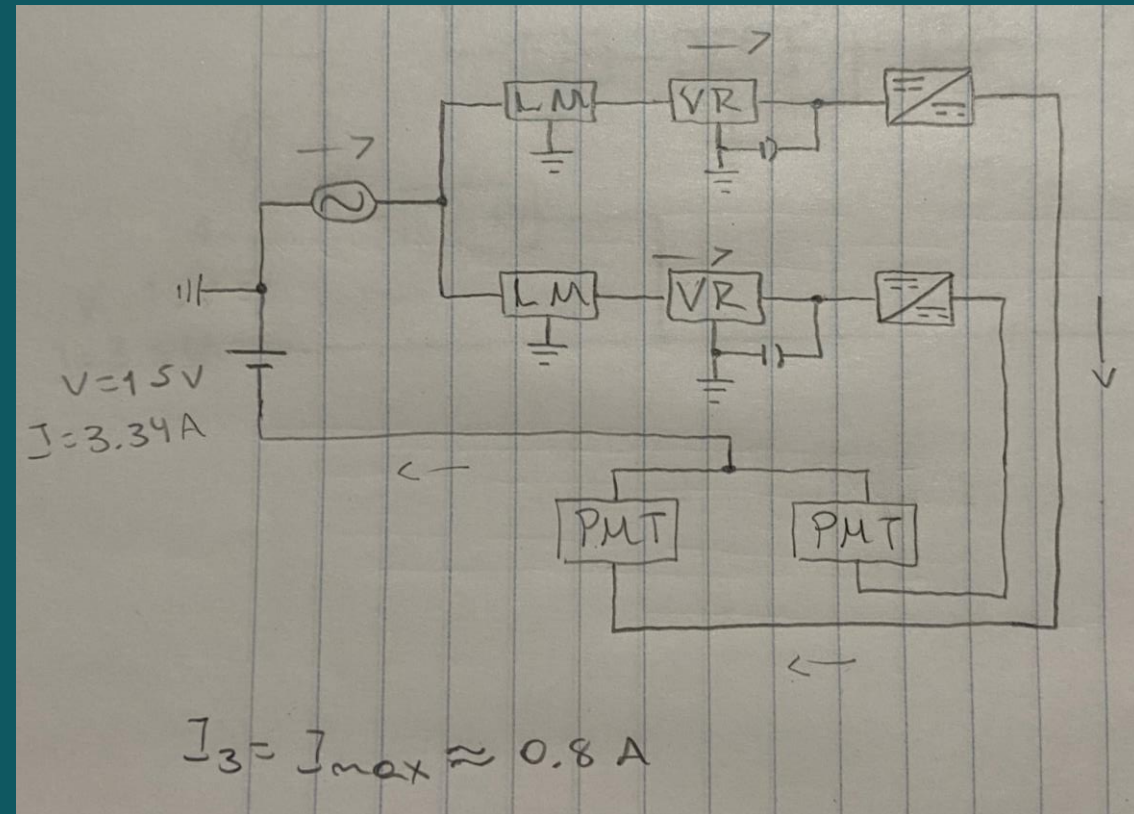 LM
VR
LM
VR
V=15V
I=3.34A
PMT
PMT
I3=Imax≈0.8 A